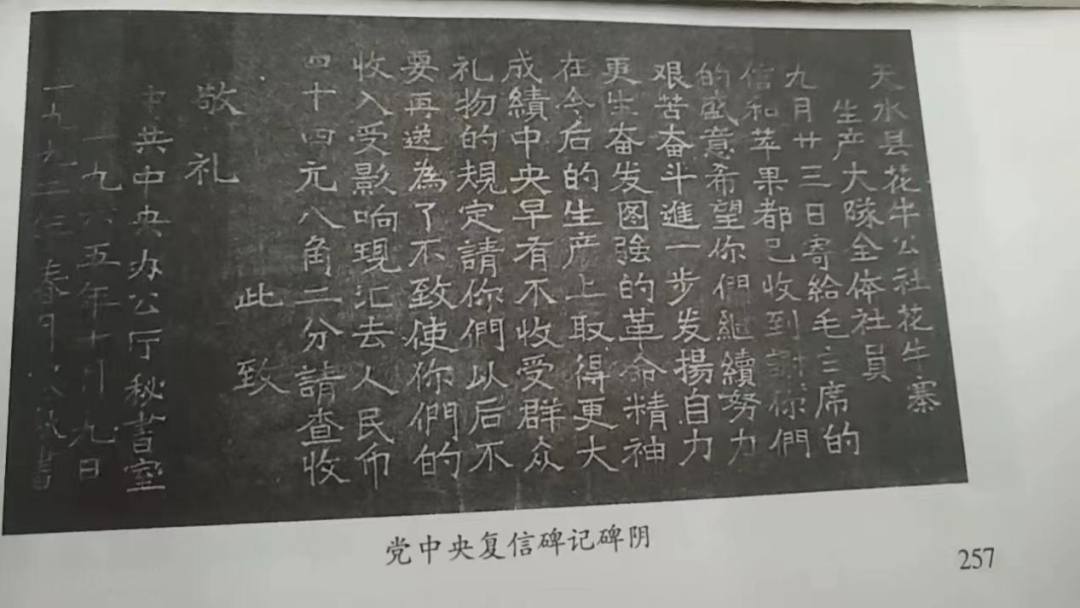 天水县花牛公社花牛寨
生产大隊全体社員
九月廿三日寄給毛主席的
信和苹果都已收到謝你們
的盛意希望你們継續努力
艰苦奋斗進一步发揚自力
更生奋发图強的革命精神
在今后的生产上取得更大
成績中央早有不收受群众
礼物的規定請你們以后不
要再送為了不致使你們的
收入受影响現汇去人民币
四十四元八角二分請查收
此致
敬礼
中共中央办公厅秘書室
一九六五年十月九日
一九九二年春月
書
党中央复信碑记碑阴
257